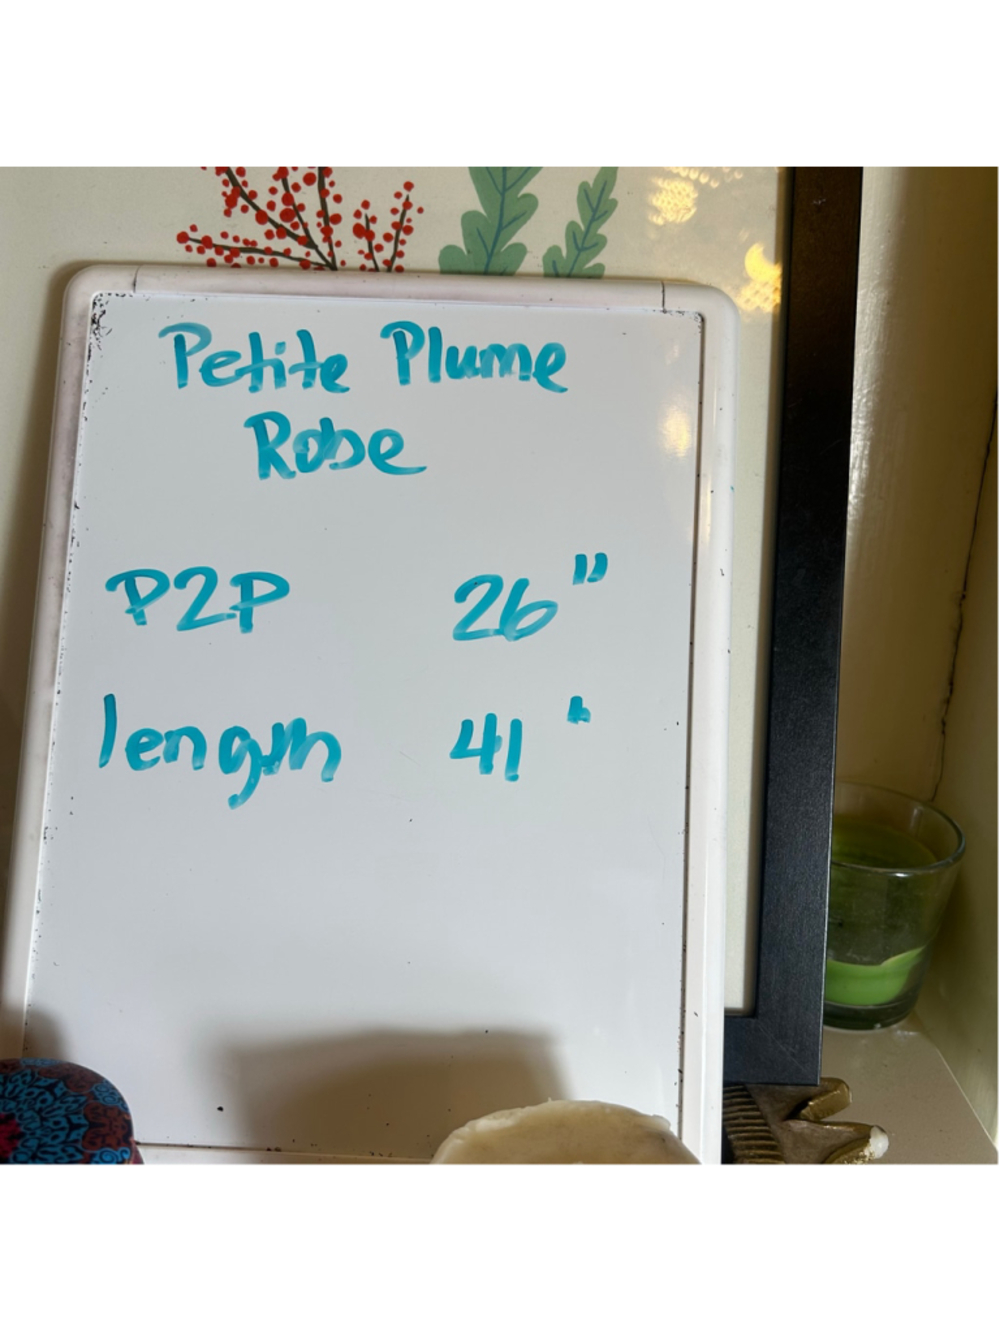 Petite Plume
Robe
P2P 26"
length 41"